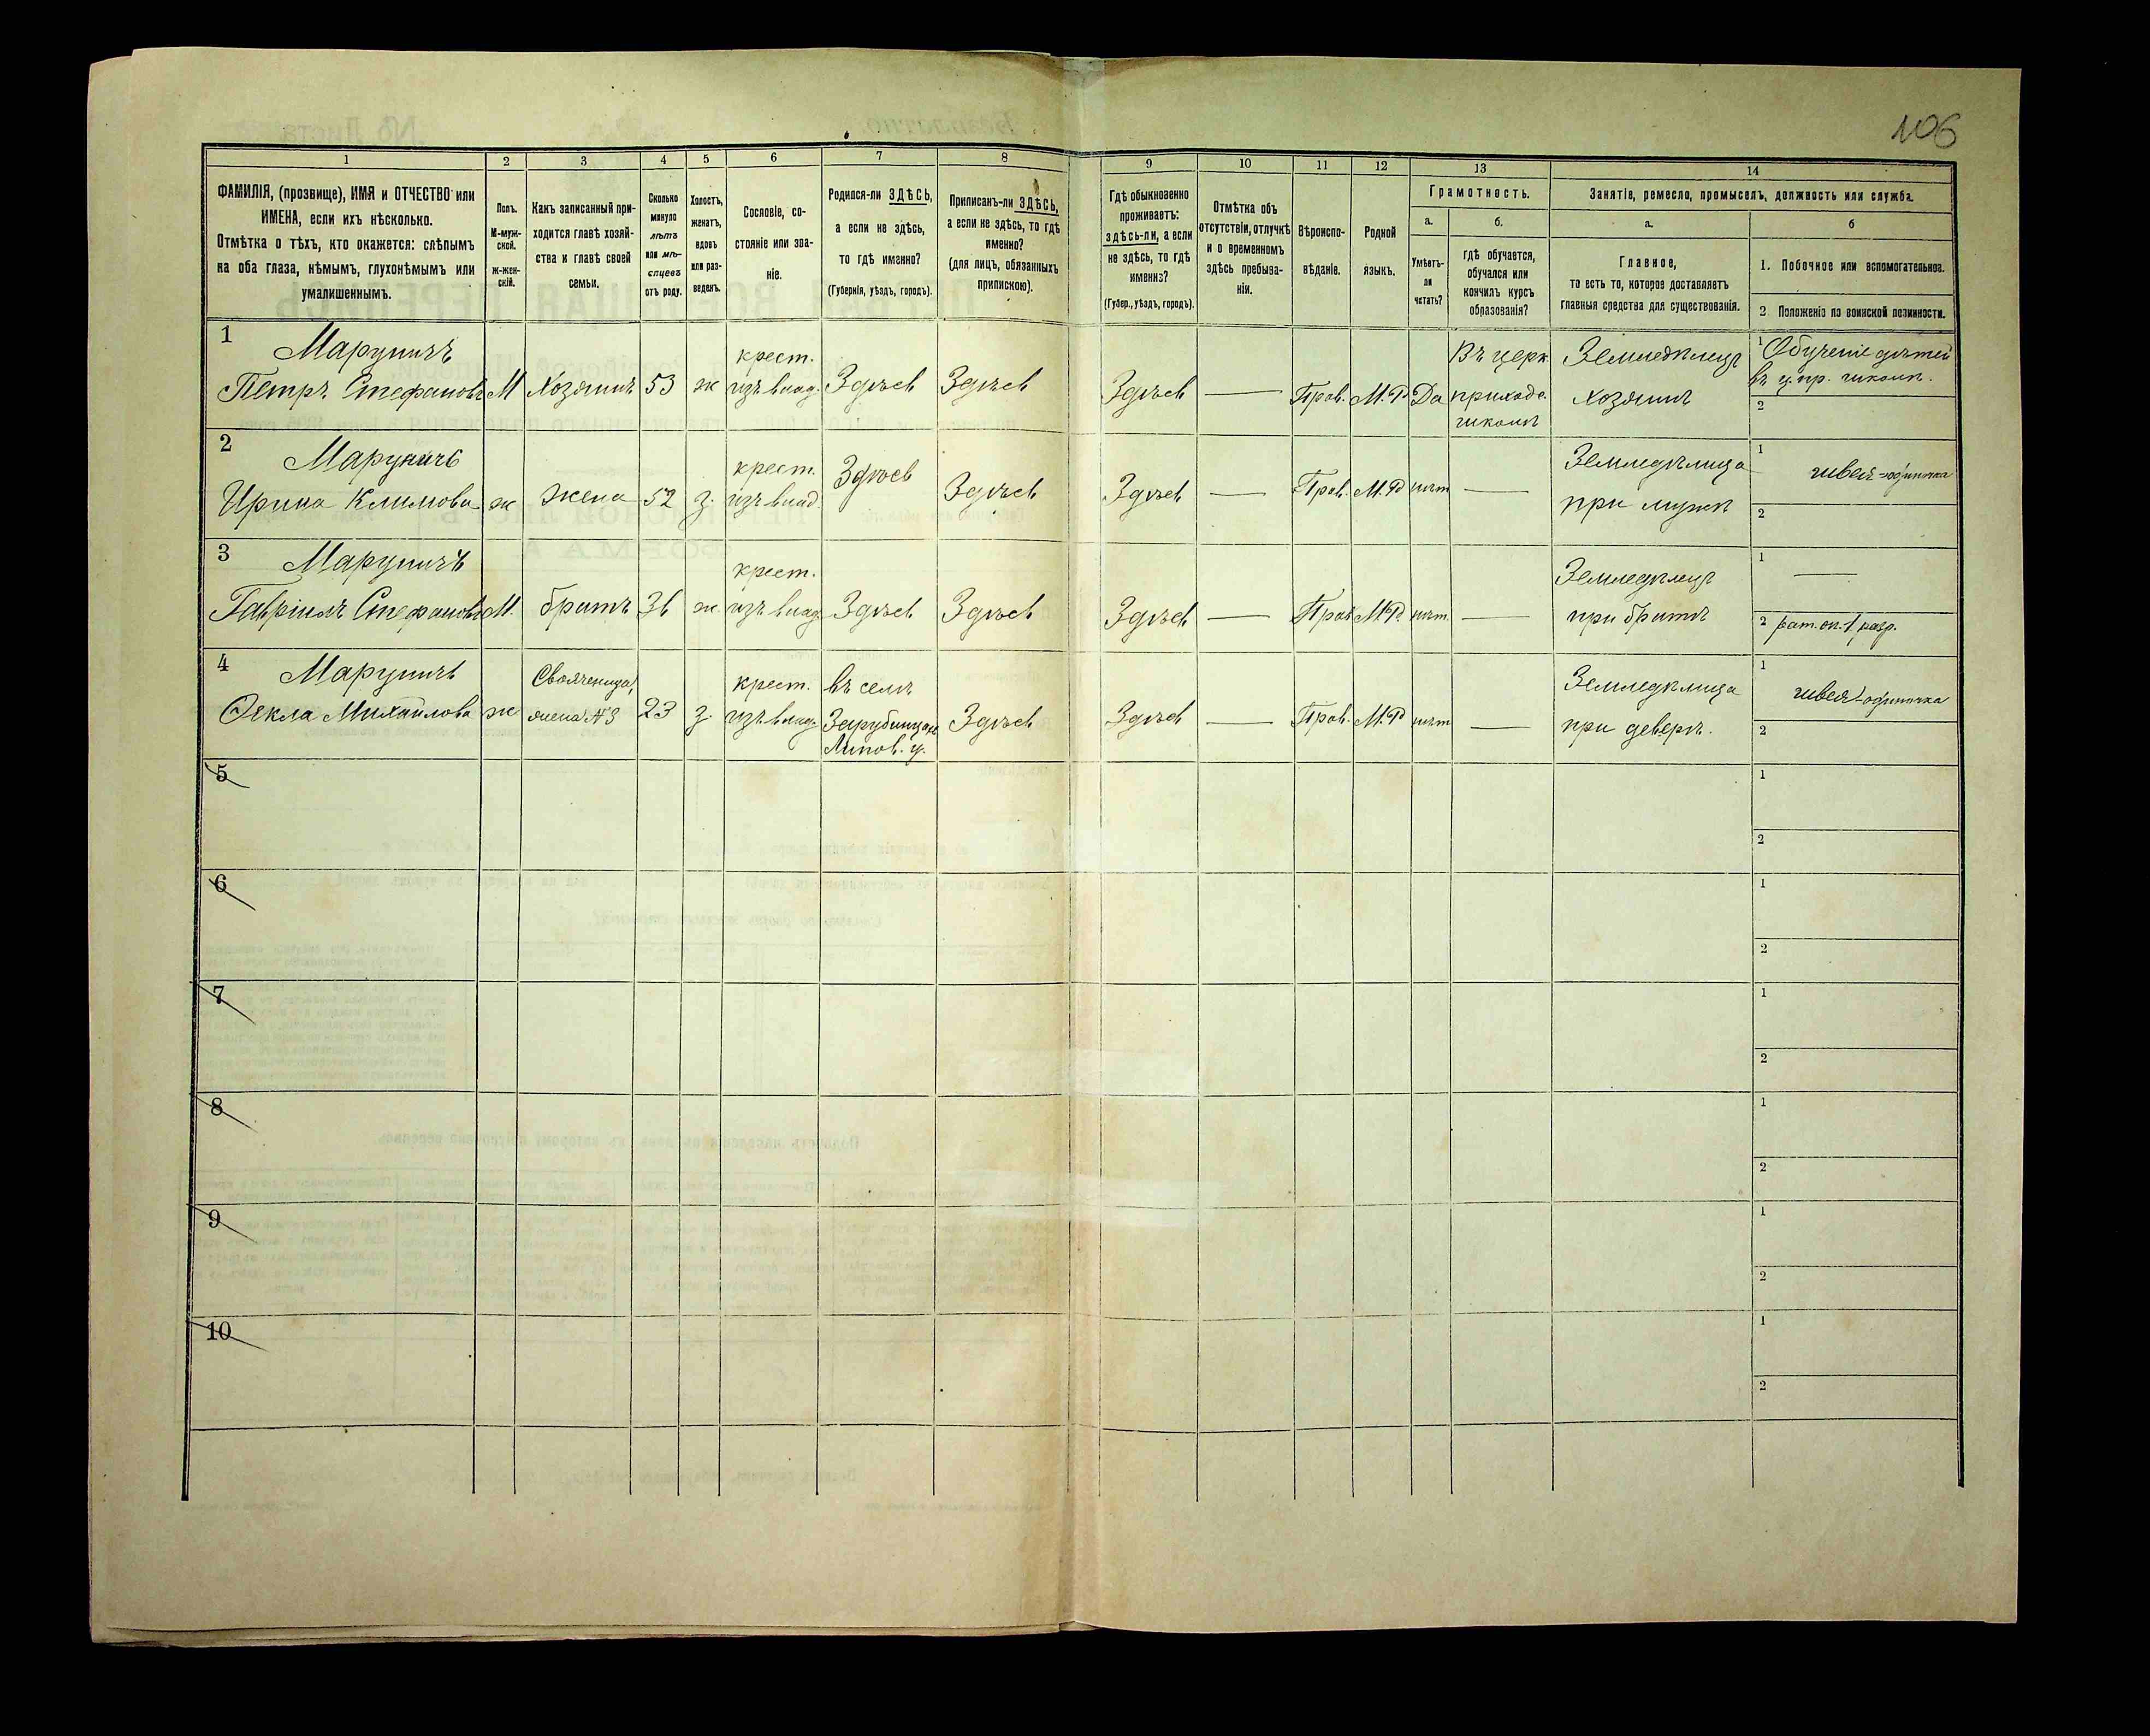 106
1 2 3 4 5 6 7 8 9 10 11 12 13 14
ФАМИЛІЯ, (прозвище), ИМЯ и ОТЧЕСТВО или
ИМЕНА, если ихъ нѣсколько.
Отмѣтка о тѣхъ, кто окажется: слѣпымъ
на оба глаза, нѣмымъ, глухонѣмымъ или
умалишеннымъ.
Полъ.
М-муж-
ской.
ж-жен-
скій.
Какъ записанный при-
ходится главѣ хозяй-
ства и главѣ своей
семьи.
Сколько
минуло
лѣтъ
или мѣ-
сяцевъ
отъ роду.
Холостъ,
женатъ,
вдовъ
или раз-
веденъ.
Сословіе, со-
стояніе или зва-
ніе.
Родился-ли ЗДѢСЬ,
а если не здѣсь,
то гдѣ именно?
(Губернія, уѣздъ, городъ).
Приписанъ-ли ЗДѢСЬ,
а если не здѣсь, то гдѣ
именно?
(для лицъ, обязанныхъ
припискою).
Гдѣ обыкновенно
проживаетъ:
здѣсь-ли, а если
не здѣсь, то гдѣ
именно?
(Губер., уѣздъ, городъ).
Отмѣтка объ
отсутствіи, отлучкѣ
и о временномъ
здѣсь пребыва-
ніи.
Вѣроиспо-
вѣданіе.
Родной
языкъ.
Грамотность.
а.
Умѣетъ-
ли
читать?
б.
гдѣ обучается,
обучался или
кончилъ курсъ
образованія?
Занятіе, ремесло, промыселъ, должность или служба.
а.
Главное,
то есть то, которое доставляетъ
главныя средства для существованія.
б
1. Побочное или вспомогательное.
2 Положеніе по воинской повинности.
1
Маруничъ
Петръ Стефановъ М Хозяинъ 53 ж
крест.
изъ влад. Здѣсь Здѣсь Здѣсь — Прав. М.Р Да
Въ церк.
приходс.
школѣ
Земледѣлецъ
Хозяинъ
1 Обученіе дѣтей
въ ц.пр. школѣ.
2
2
Маруничъ
Ирина Климова ж жена 52 з.
крест.
изъ влад. Здѣсь Здѣсь Здѣсь — Прав. М.Р нѣтъ —
Земледѣлица
при мужѣ
1 швея-одиночка
2
3
Маруничъ
Гавріилъ Стефановъ М. братъ 36 ж
крест.
изъ влад. Здѣсь Здѣсь Здѣсь — Прав. М.Р. нѣтъ —
Земледѣлецъ
при братѣ
1 —
2 рат. оп. 1 разр.
4
Маруничъ
Ѳекла Михайлова ж
Свояченица,
жена №3 23 з.
крест.
изъ влад.
въ селѣ
Зарубинцахъ
Липов. у.
Здѣсь Здѣсь — Прав. М.Р нѣтъ —
Земледѣлица
при деверѣ.
1 швея-одиночка
2
5
1
2
6
1
2
7
1
2
8
1
2
9
1
2
10
1
2